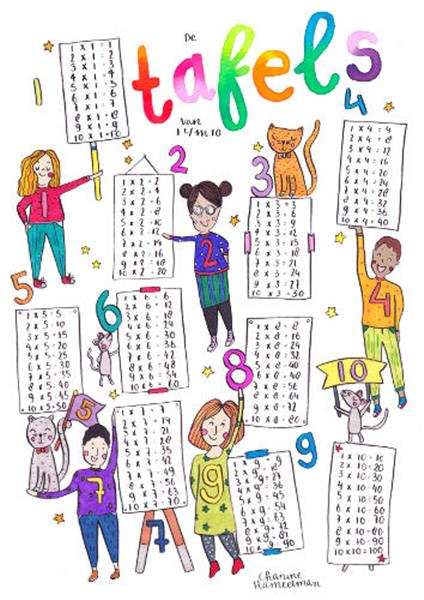 De
tafels
van
1 t/m 10
1
1 x 1 = 1
2 x 1 = 2
3 x 1 = 3
4 x 1 = 4
5 x 1 = 5
6 x 1 = 6
7 x 1 = 7
8 x 1 = 8
9 x 1 = 9
10 x 1 = 10
1
2
1 x 2 = 2
2 x 2 = 4
3 x 2 = 6
4 x 2 = 8
5 x 2 = 10
6 x 2 = 12
7 x 2 = 14
8 x 2 = 16
9 x 2 = 18
10 x 2 = 20
2
3
1 x 3 = 3
2 x 3 = 6
3 x 3 = 9
4 x 3 = 12
5 x 3 = 15
6 x 3 = 18
7 x 3 = 21
8 x 3 = 24
9 x 3 = 27
10 x 3 = 30
4
1 x 4 = 4
2 x 4 = 8
3 x 4 = 12
4 x 4 = 16
5 x 4 = 20
6 x 4 = 24
7 x 4 = 28
8 x 4 = 32
9 x 4 = 36
10 x 4 = 40
4
5
1 x 5 = 5
2 x 5 = 10
3 x 5 = 15
4 x 5 = 20
5 x 5 = 25
6 x 5 = 30
7 x 5 = 35
8 x 5 = 40
9 x 5 = 45
10 x 5 = 50
5
6
1 x 6 = 6
2 x 6 = 12
3 x 6 = 18
4 x 6 = 24
5 x 6 = 30
6 x 6 = 36
7 x 6 = 42
8 x 6 = 48
9 x 6 = 54
10 x 6 = 60
7
1 x 7 = 7
2 x 7 = 14
3 x 7 = 21
4 x 7 = 28
5 x 7 = 35
6 x 7 = 42
7 x 7 = 49
8 x 7 = 56
9 x 7 = 63
10 x 7 = 70
7
8
1 x 8 = 8
2 x 8 = 16
3 x 8 = 24
4 x 8 = 32
5 x 8 = 40
6 x 8 = 48
7 x 8 = 56
8 x 8 = 64
9 x 8 = 72
10 x 8 = 80
9
9
1 x 9 = 9
2 x 9 = 18
3 x 9 = 27
4 x 9 = 36
5 x 9 = 45
6 x 9 = 54
7 x 9 = 63
8 x 9 = 72
9 x 9 = 81
10 x 9 = 90
10
1 x 10 = 10
2 x 10 = 20
3 x 10 = 30
4 x 10 = 40
5 x 10 = 50
6 x 10 = 60
7 x 10 = 70
8 x 10 = 80
9 x 10 = 90
10 x 10 = 100
Charine
Hameetman